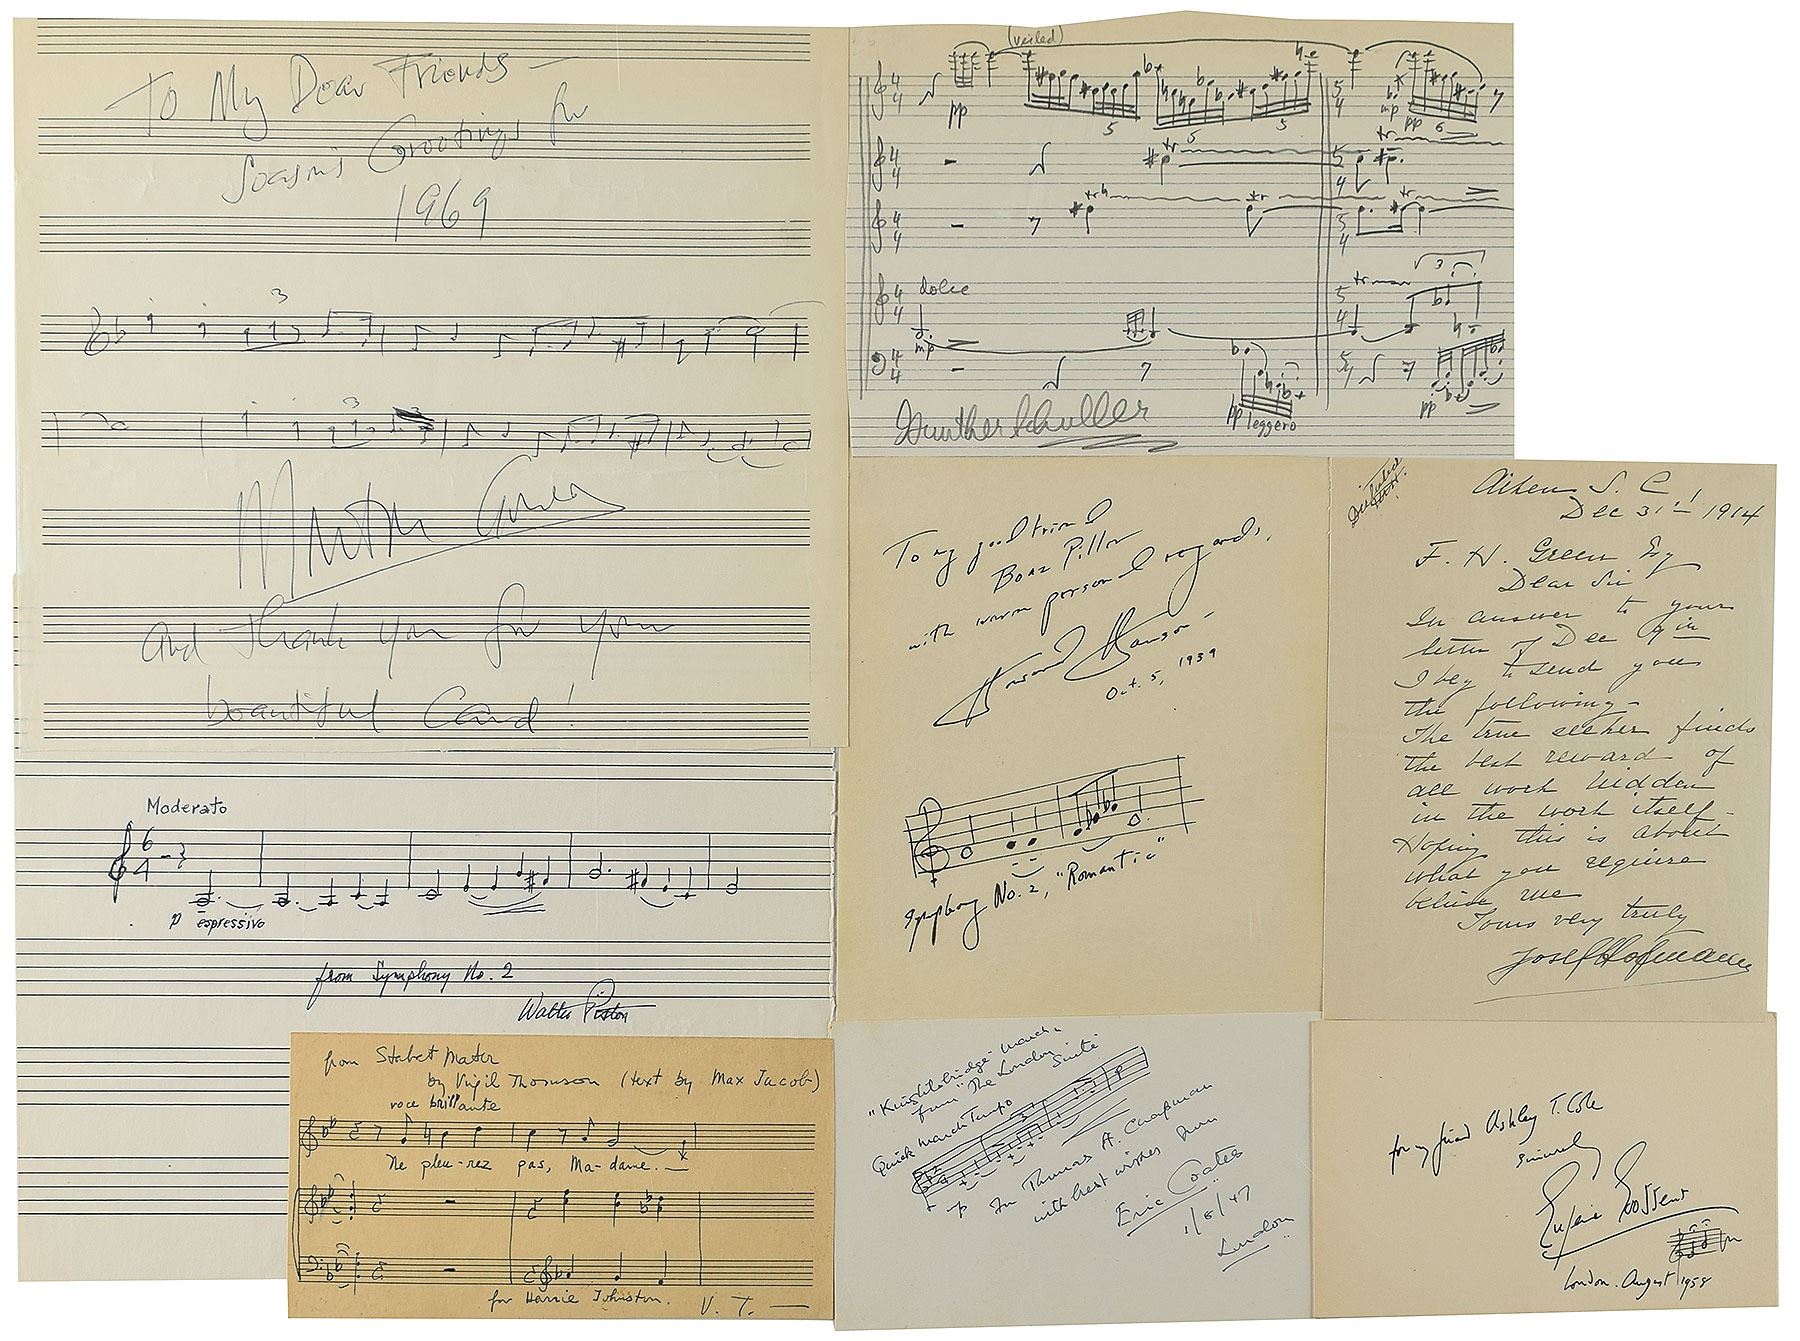 To My Dear Friends —
Season's Greetings for
1969
3
3
and thank you for your
beautiful Card!
(veiled)
pp
5
5
5
mp
pp
6
tr
tr
tr
tr
dolce
mp
3
pp
leggero
pp
Gunther Schuller
To my good friend
Boaz Piller
with warm personal regards,
Howard Hanson —
Oct. 5, 1939
Symphony No. 2, "Romantic"
Aiken S. C.
Dec 31st 1914
F. H. Green Esq
Dear Sir
In answer to your
letter of Dec 9th
I beg to send you
the following —
The true seeker finds
the best reward of
all work hidden
in the work itself —
Hoping this is about
what you require
believe me
Yours very truly
Josef Hofmann
Moderato
6
4
p espressivo
from Symphony No. 2
Walter Piston
from Stabat Mater
by Virgil Thomson (text by Max Jacob)
voce brillante
Ne pleu-rez pas, Ma-dame. —
for Harrie Johnston. V. T. —
"Knightsbridge" March
from "The London Suite"
Quick March Tempo
p
For Thomas A. Chapman
with best wishes from
Eric Coates
1/8/47
London
for my friend Ashley T. Cole
sincerely
Eugene Goossens
London. August 1958